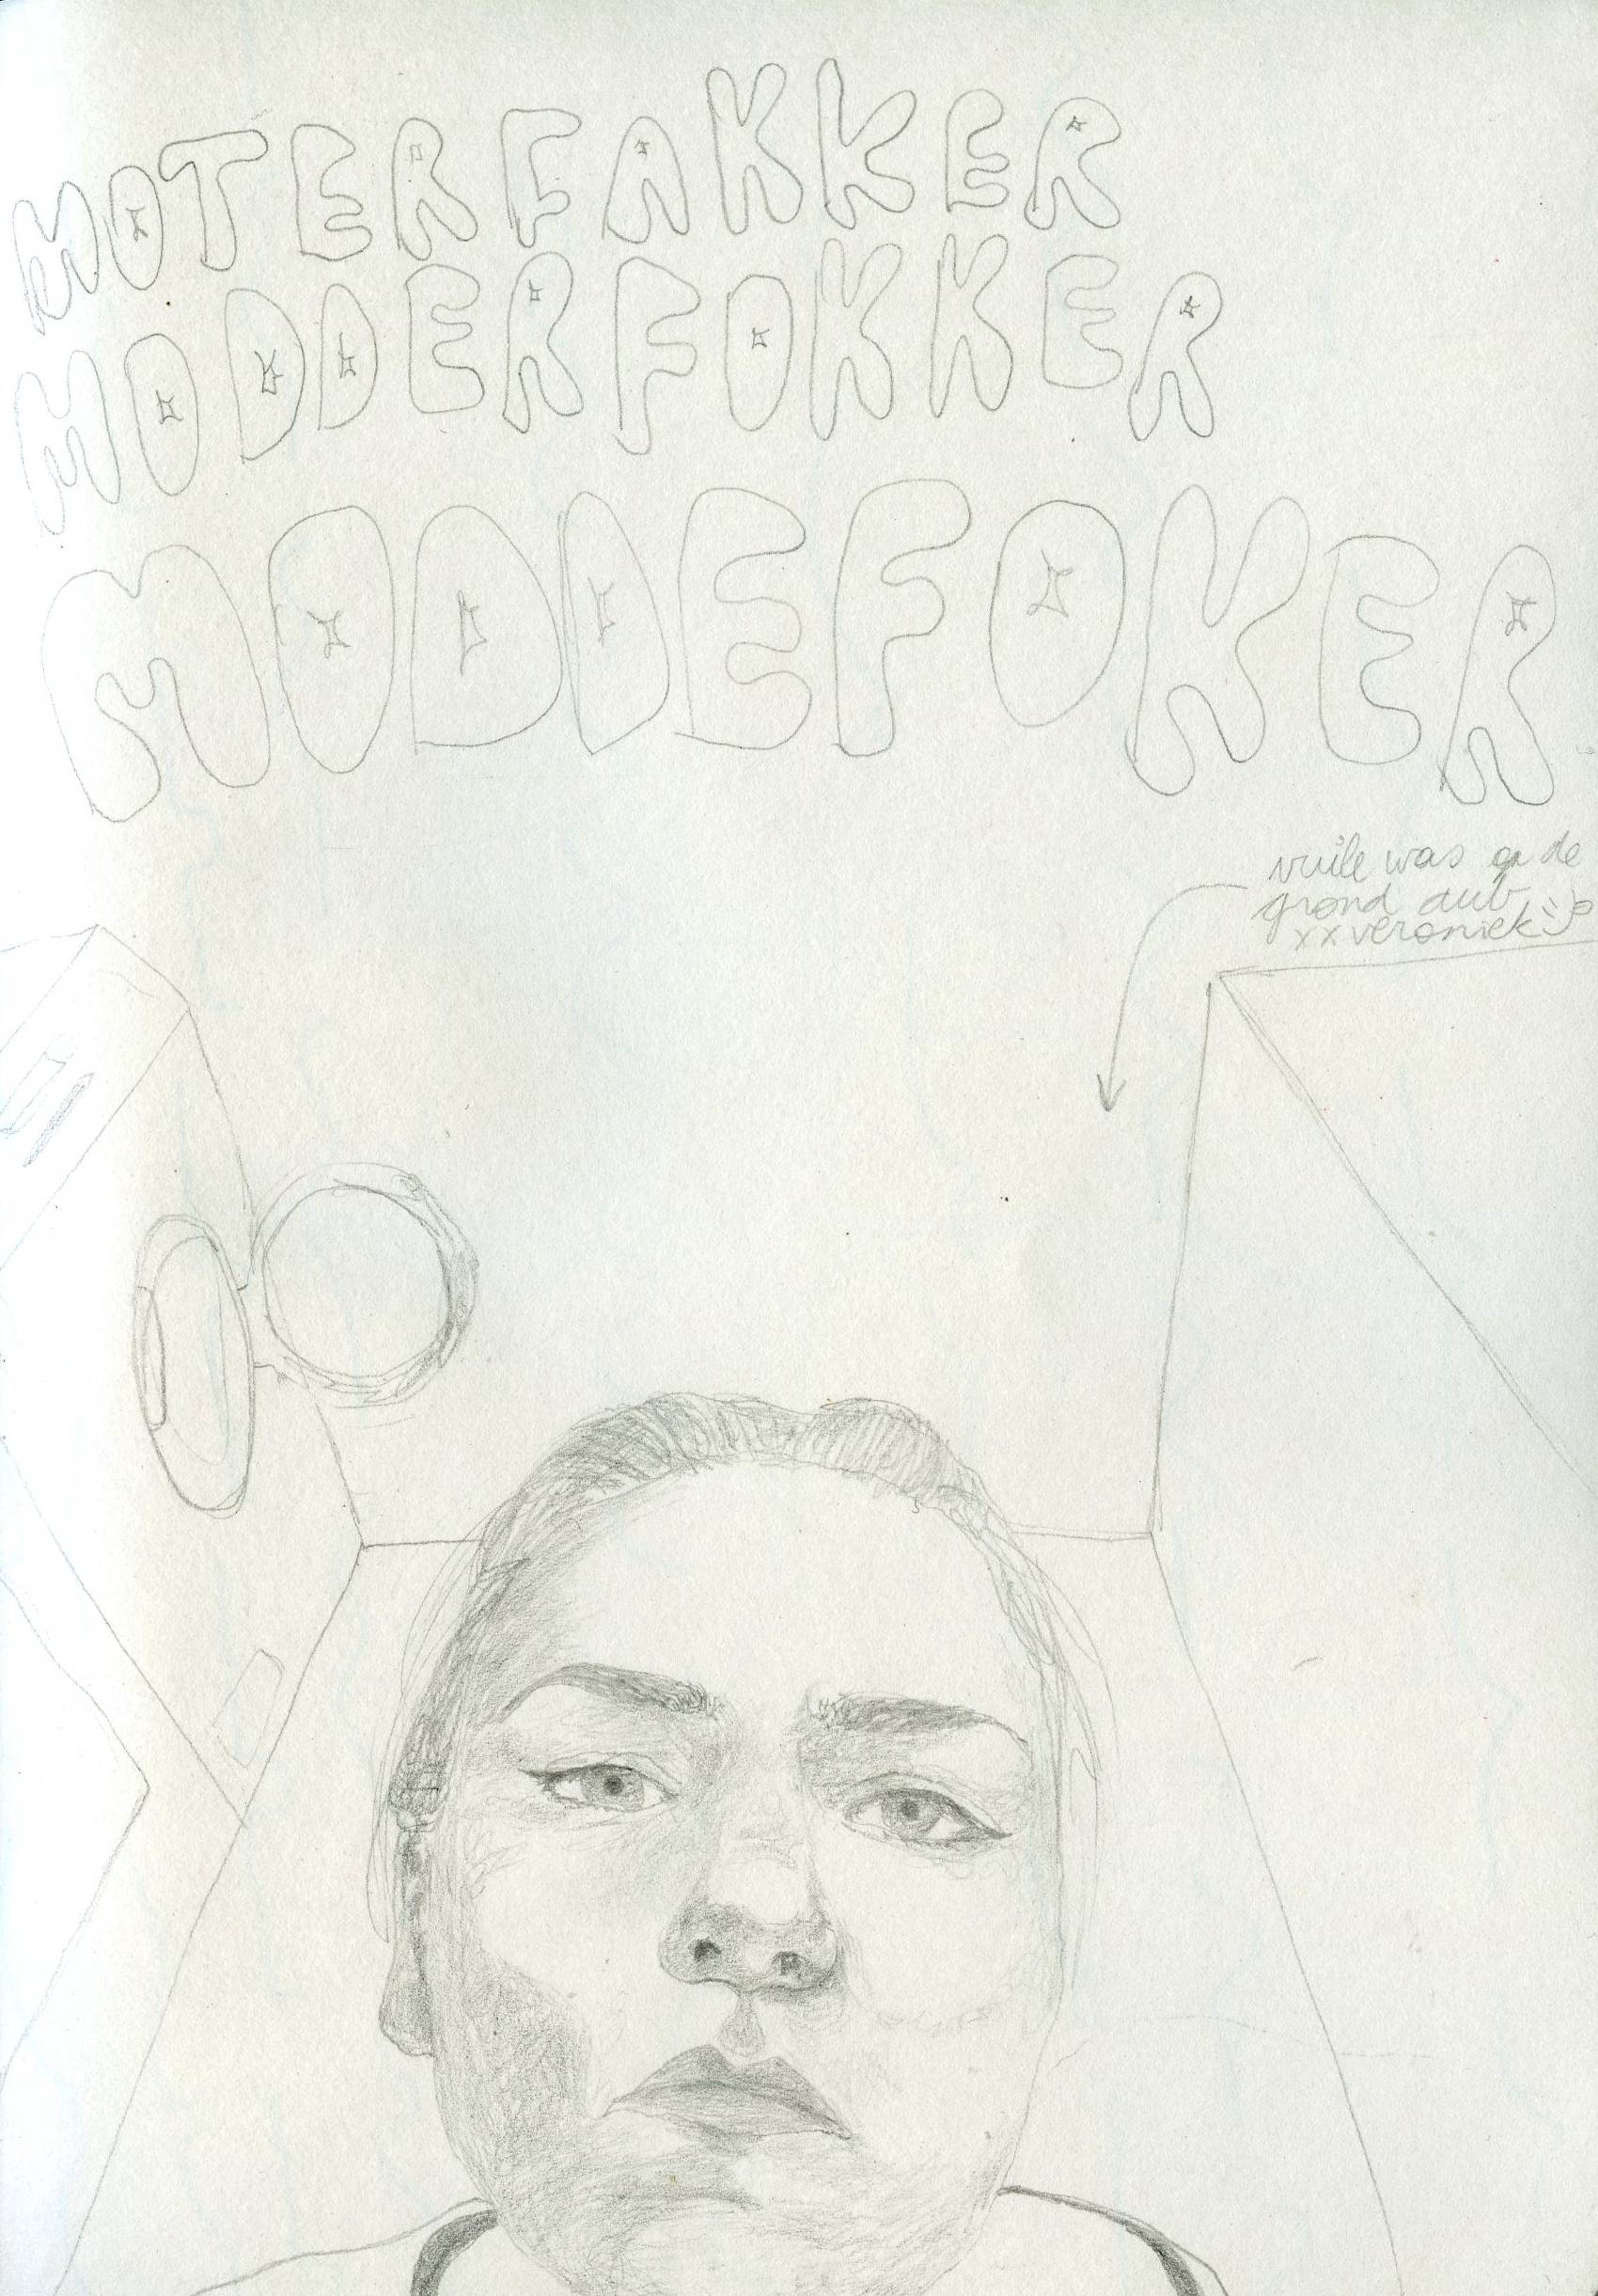 MOTERFAKKER
MODDERFOKKER
MODDEFOKER
vuile was op de
grond aub
xx veroniek